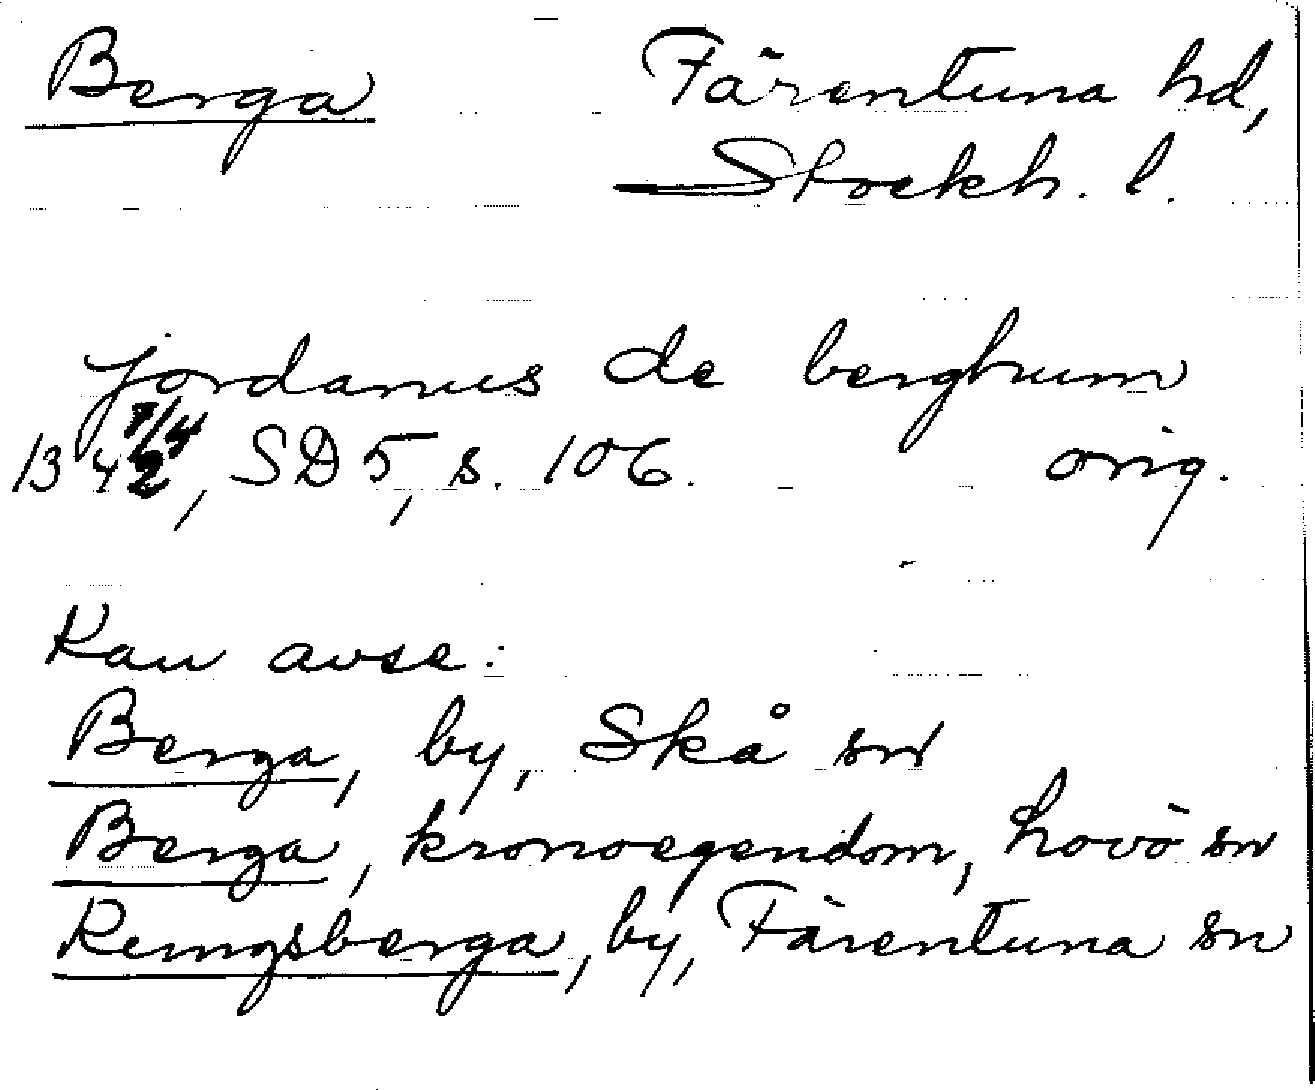 Berga Färentuna hd,
Stockh. l.
jordanus de berghum
1342 7/4, SD 5, s. 106. orig.
Kan avse:
Berga, by, Skå sn
Berga, kronoegendom, Lovö sn
Rungsberga, by, Färentuna sn